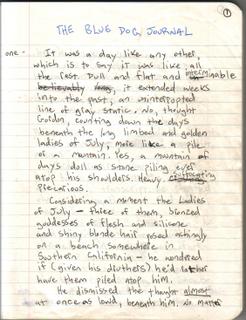 1
THE BLUE DOG JOURNAL
one - It was a day like any other,
which is to say it was like all
the rest. Dull and flat and interminable
it extended weeks
into the past, an uninterrupted
line of gray static. No, thought
Goidon, counting down the days
beneath the long limbed and golden
ladies of July, more like a pile
or a mountain. Yes, a mountain of
days doll as stone piling ever
atop his shoulders. Heavy. suffocating
Precarious.
Considering a moment the Ladies
of July - three of them, bronzed
goddesses of flesh and silicone
and shiny blonde hair posed achingly
on a beach somewhere in
Southern California - he wondered
if (given his druthers) he'd rather
have them piled atop him.
He dismissed the thought almost
at once as lowd, beneath him. No matter